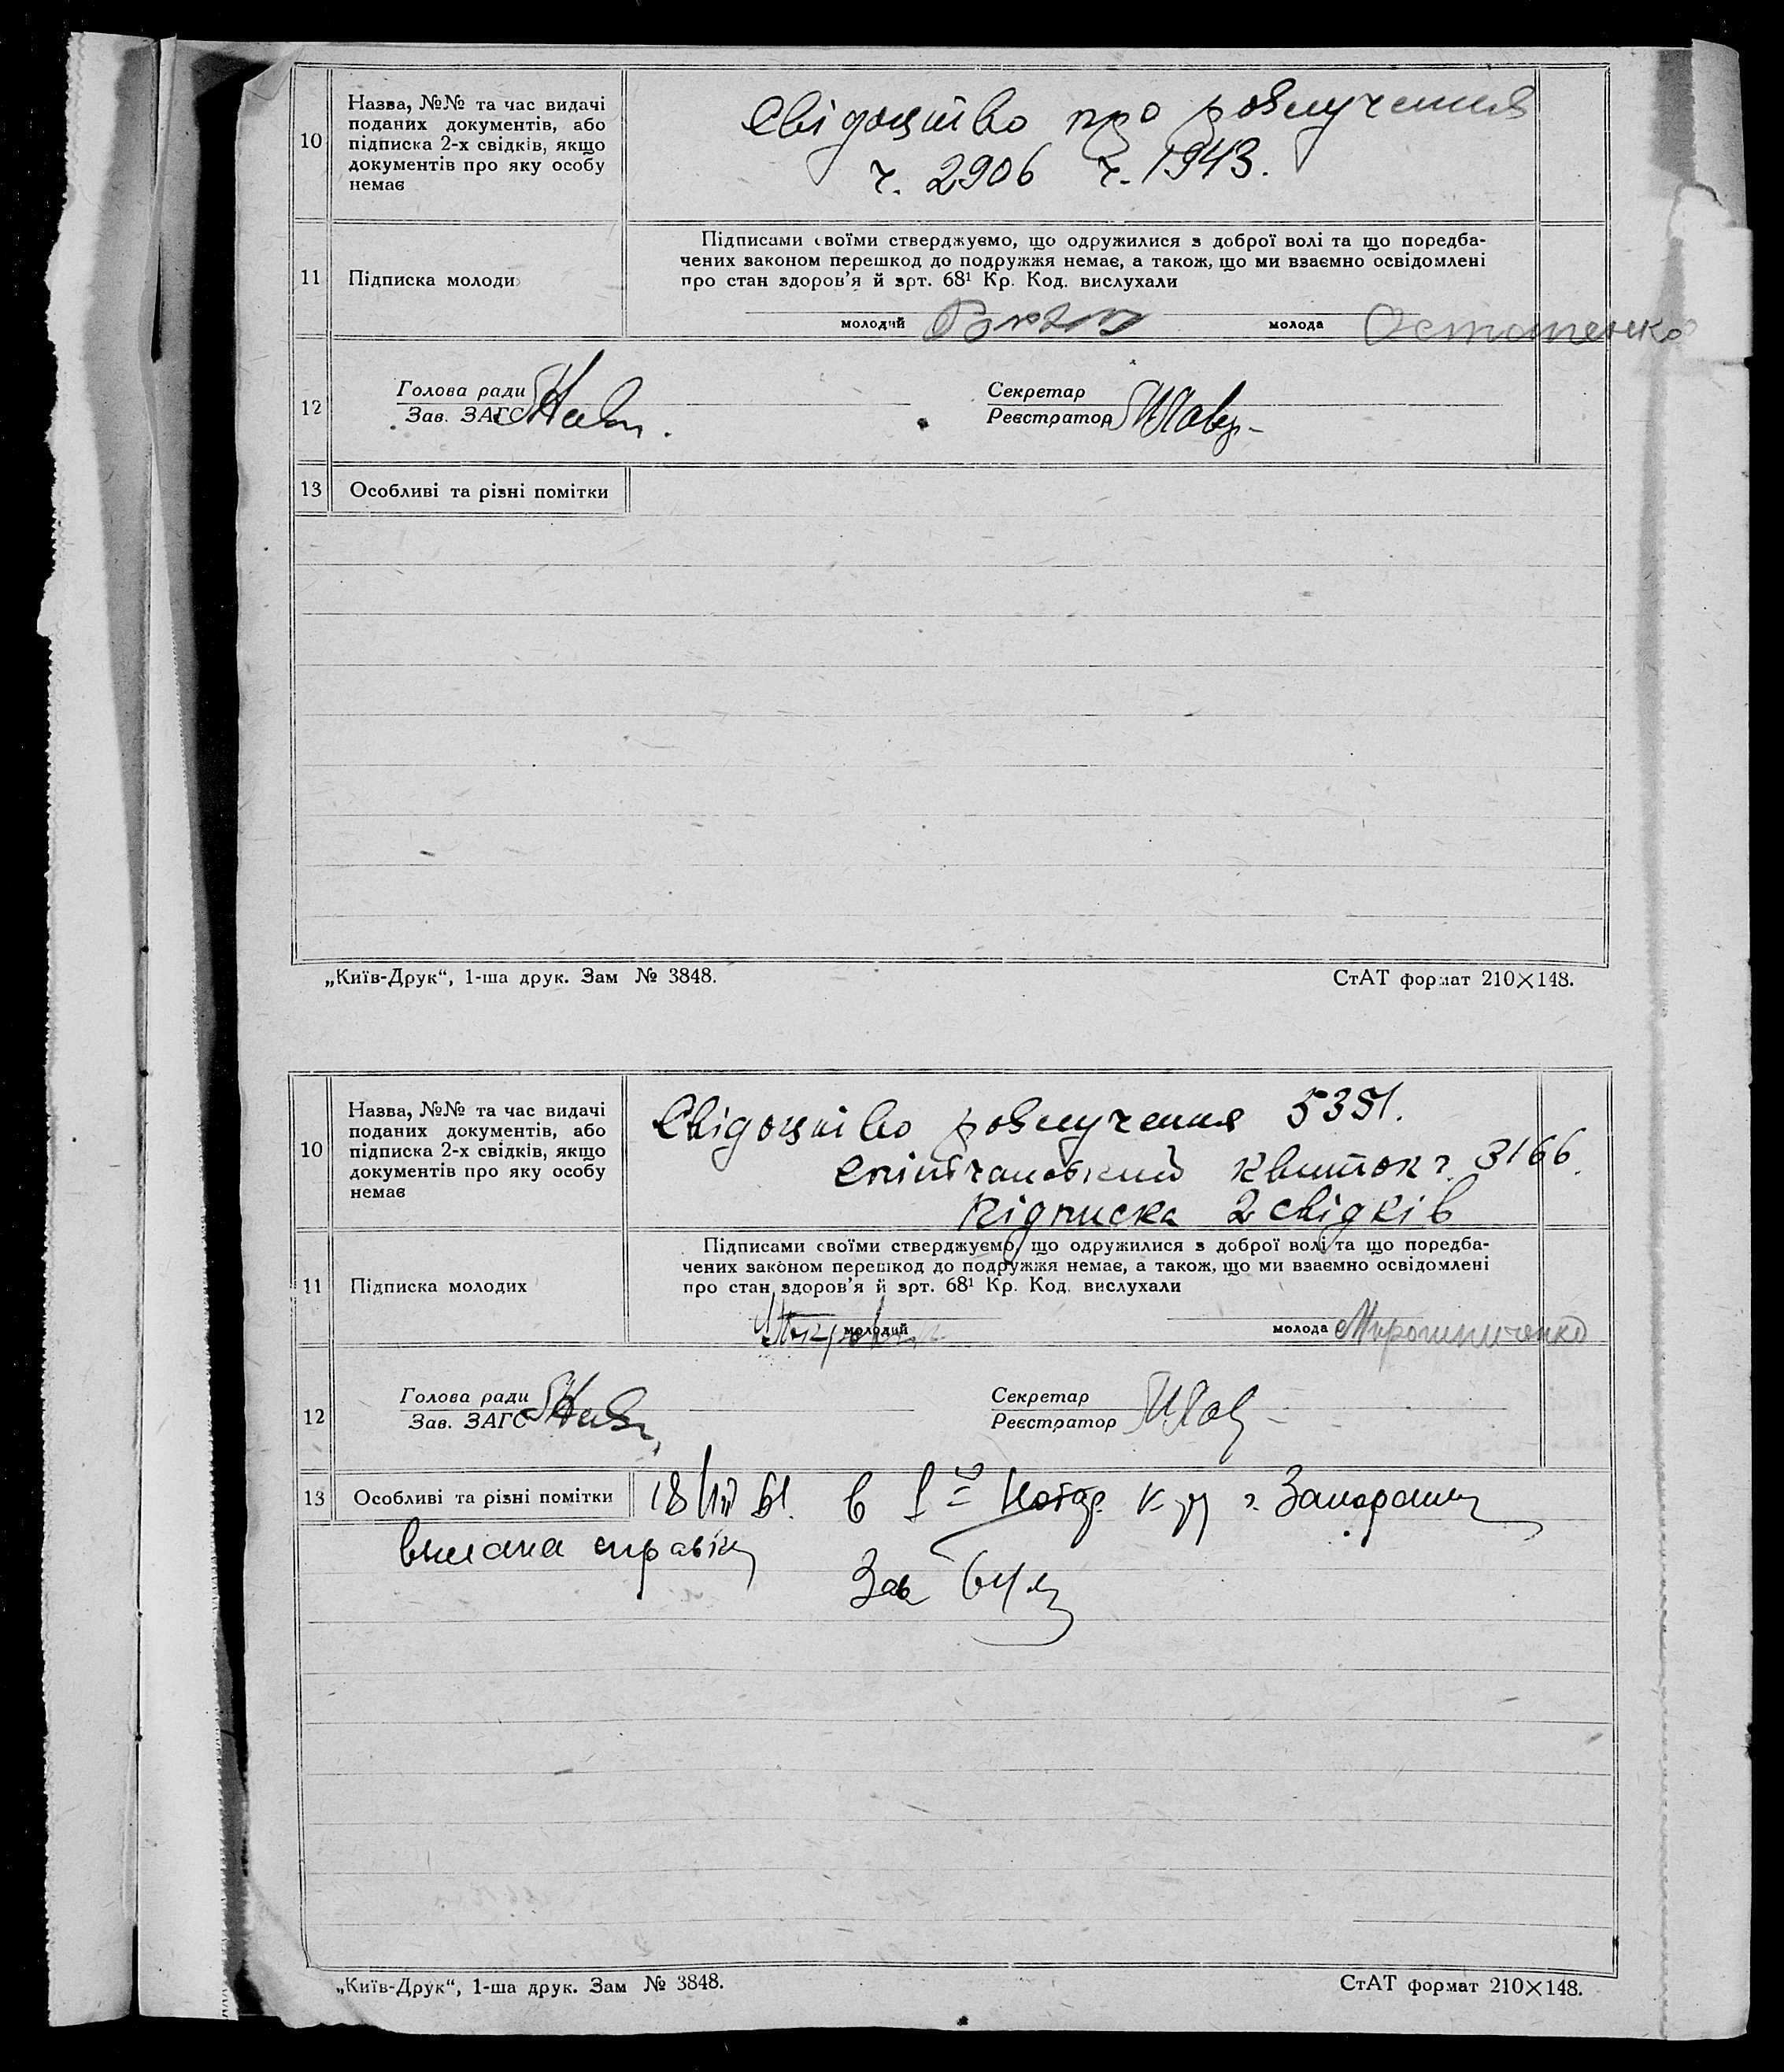 10
Назва, №№ та час видачі
поданих документів, або
підписка 2-х свідків, якщо
документів про яку особу
немає
Свідоцтво про розлучення
ч. 2906 ч. 1943.
11
Підписка молоди
Підписами своїми стверджуємо, що одружилися з доброї волі та що передба-
чених законом перешкод до подружжя немає, а також, що ми взаємно освідомлені
про стан здоров'я й арт. 68¹ Кр. Код. вислухали
молодий
молода Остапенко
12
Голова ради
Зав. ЗАГС
Секретар
Реєстратор
13
Особливі та різні помітки
„Київ-Друк“, 1-ша друк. Зам № 3848.
СтАТ формат 210×148.
10
Назва, №№ та час видачі
поданих документів, або
підписка 2-х свідків, якщо
документів про яку особу
немає
Свідоцтво розлучення 5351.
квиток ч. 3166.
Підписка 2 свідків
11
Підписка молодих
Підписами своїми стверджуємо, що одружилися з доброї волі та що передба-
чених законом перешкод до подружжя немає, а також, що ми взаємно освідомлені
про стан здоров'я й арт. 68¹ Кр. Код. вислухали
молодий
молода Мирошниченко
12
Голова ради
Зав. ЗАГС
Секретар
Реєстратор
13
Особливі та різні помітки
61. в Нотар. г. Запорожья
справка
Зав
„Київ-Друк“, 1-ша друк. Зам № 3848.
СтАТ формат 210×148.